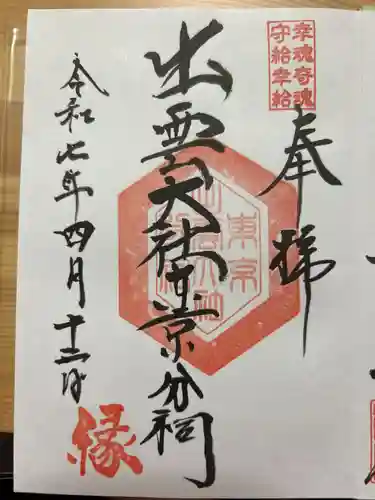 幸魂奇魂
守給幸給
奉拝
出雲大社東京分祠
東京
出雲大社
分祠
令和七年四月十二日
縁